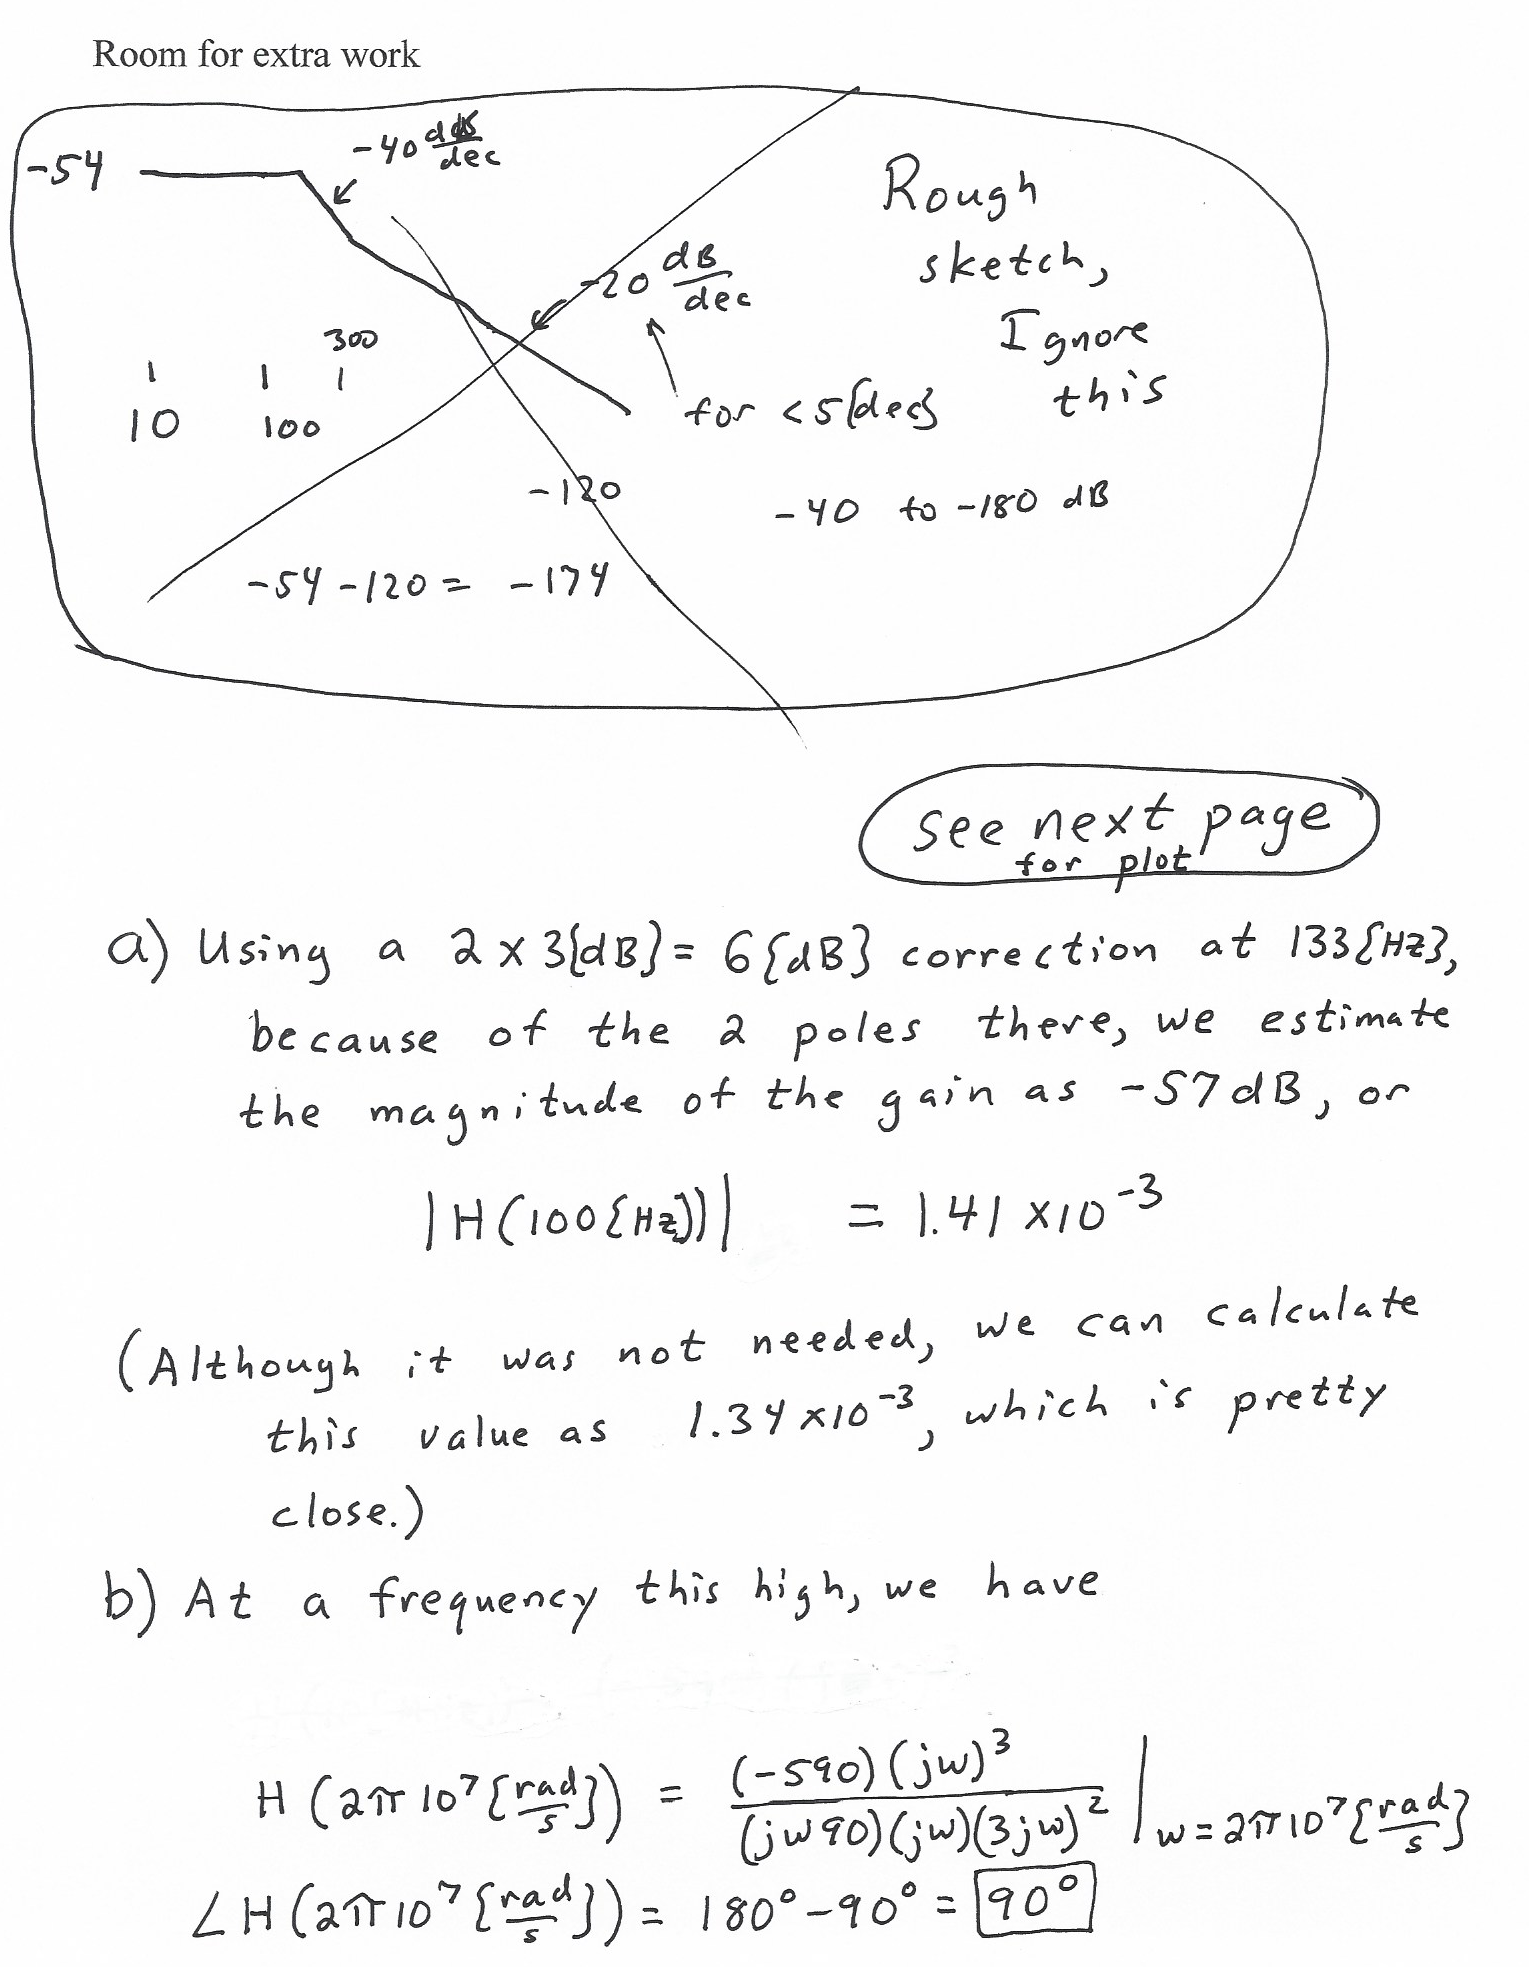 Room for extra work
-54
-40 dB/dec
Rough
sketch,
Ignore
this
-20 dB/dec
300
10 100
for <5{dec}
-120
-40 to -180 dB
-54 -120 = -174
see next page
for plot
a) Using a 2 x 3{dB} = 6{dB} correction at 133{Hz},
because of the 2 poles there, we estimate
the magnitude of the gain as -57dB, or
|H(100{Hz})| = 1.41 x10^-3
(Although it was not needed, we can calculate
this value as 1.34 x10^-3, which is pretty
close.)
b) At a frequency this high, we have
H(2π10^7{rad/s}) = (-590)(jw)^3 / (jw90)(jw)(3jw)^2 | w=2π10^7{rad/s}
∠H(2π10^7{rad/s}) = 180° - 90° = 90°